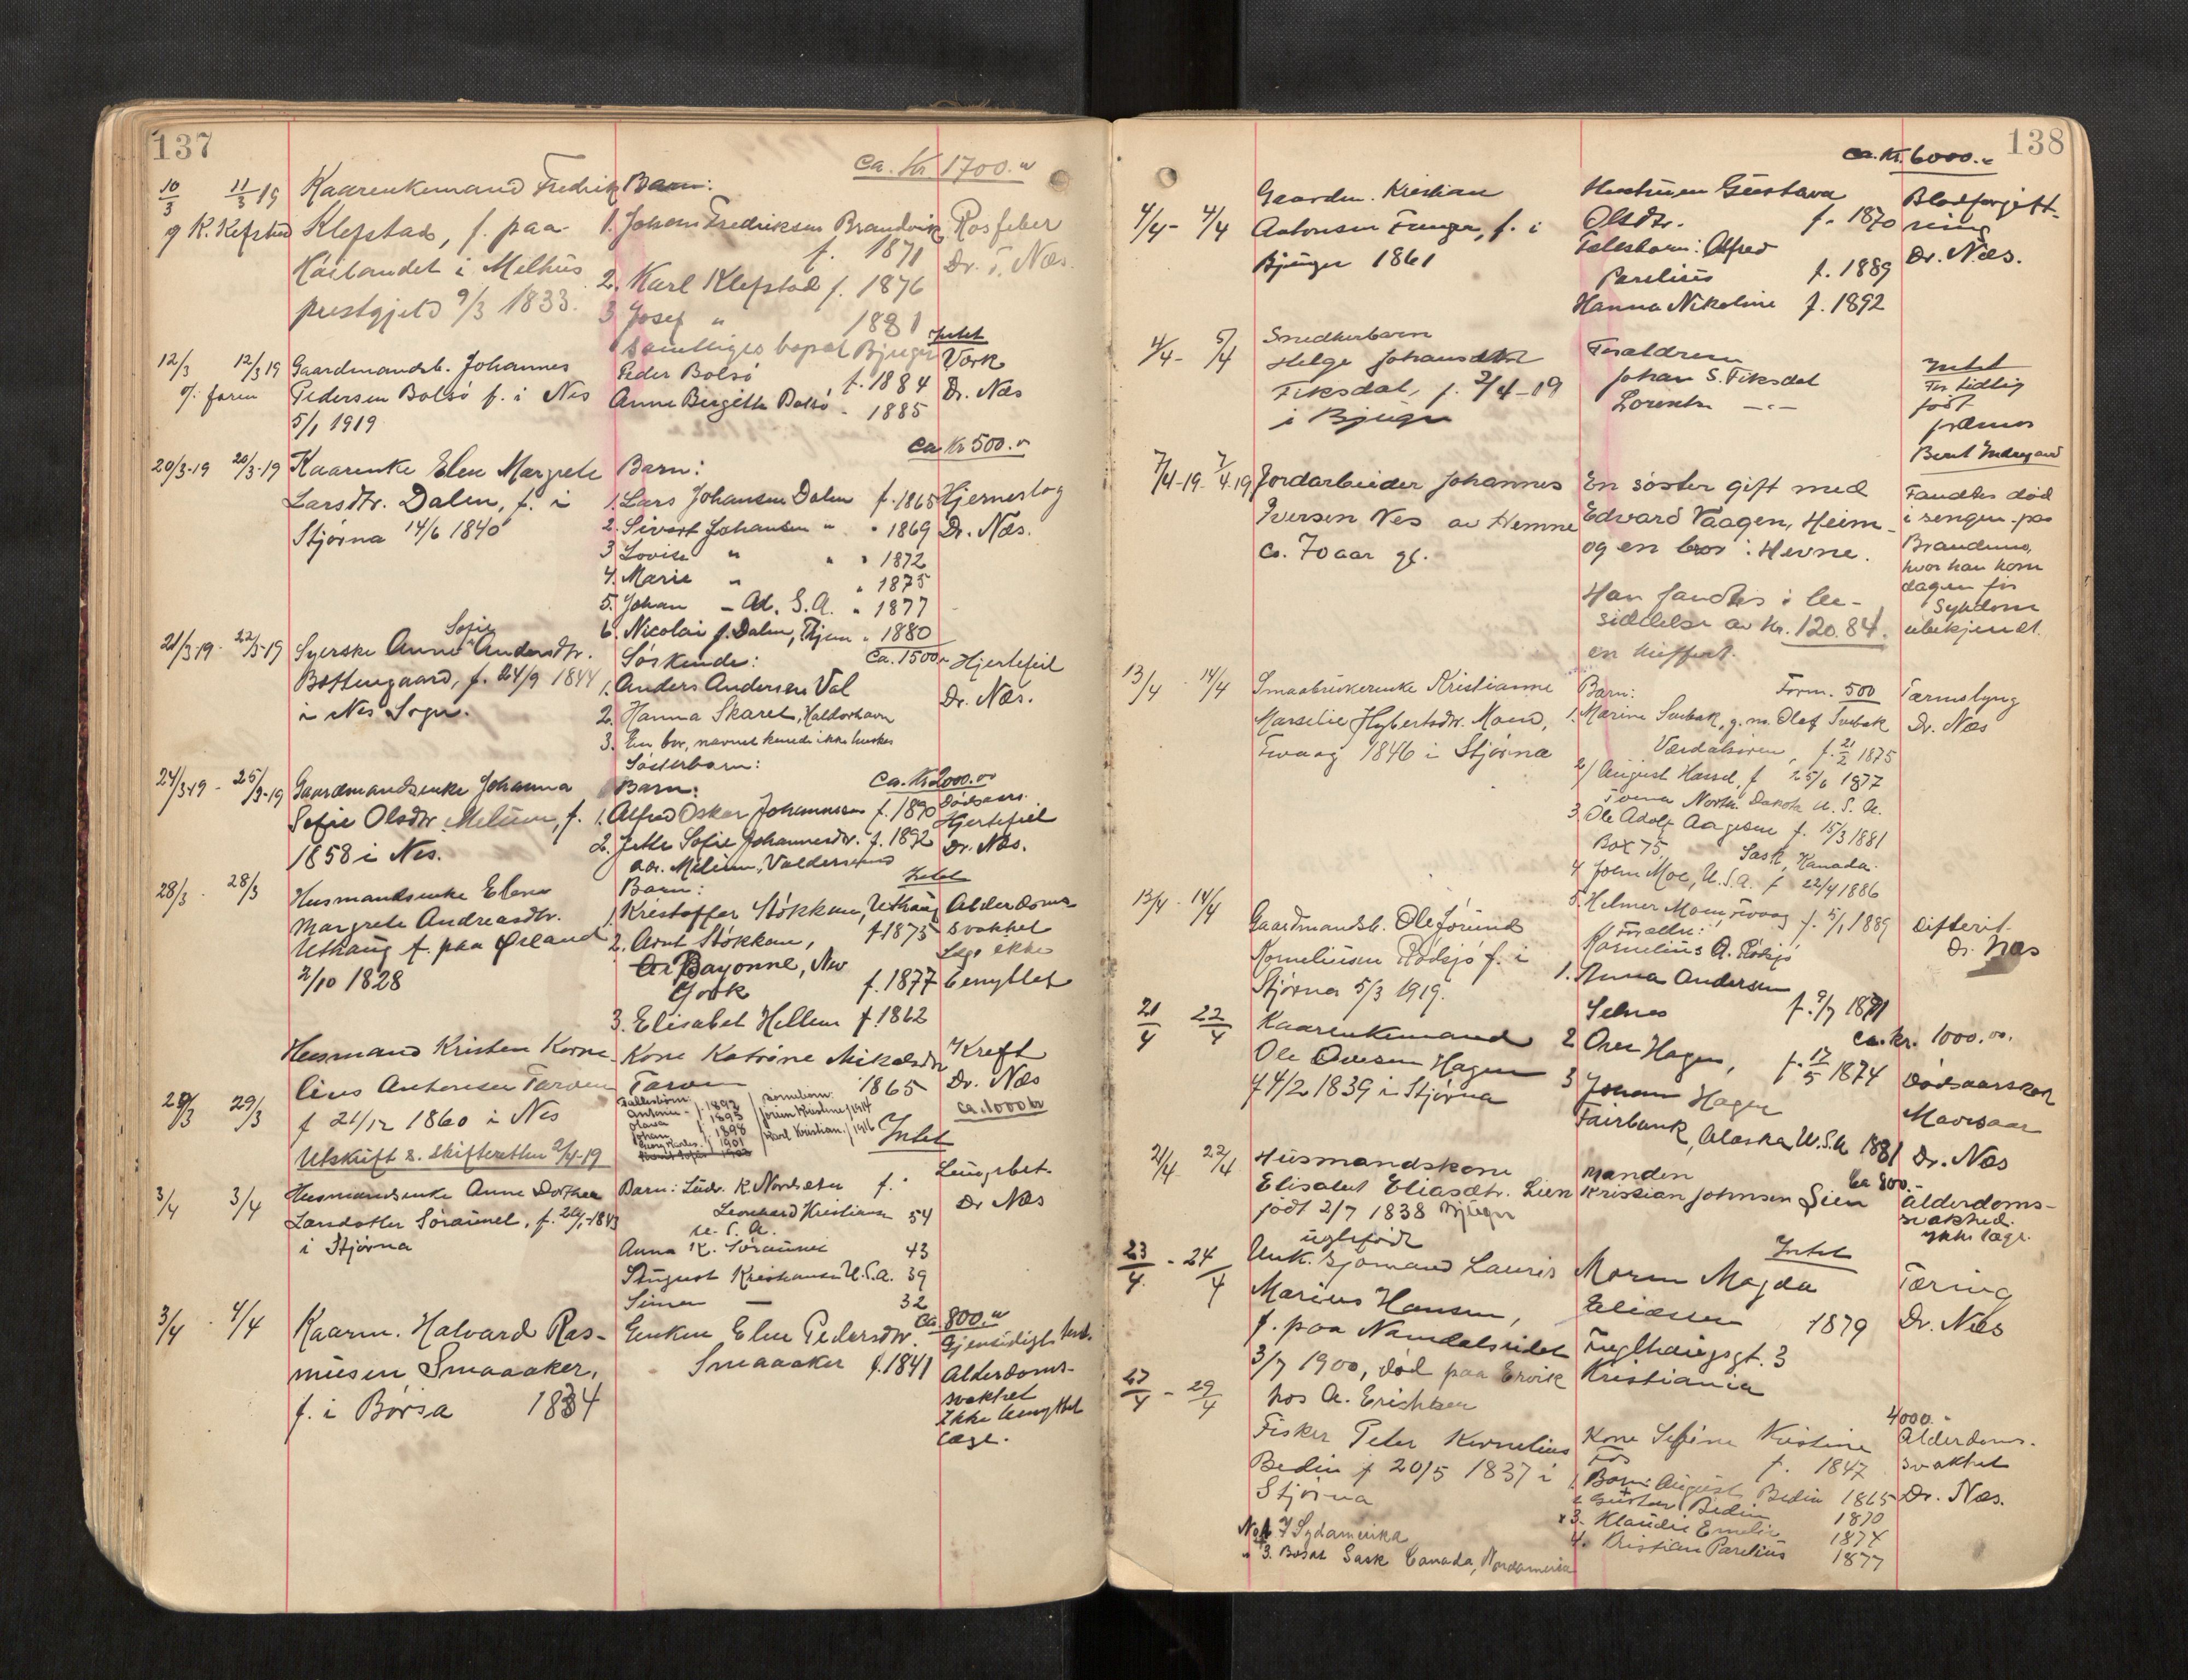 137
ca. Kr 1700.
10/3 11/3 19 Kaarenkemand Fredrik Barn:
Klepstad, f. paa 1. Johans Fredriksen Brandvik Rosfeber
f. 1871
Høilandet i Melhus Dr. Næs.
2. Karl Klepstad f. 1876
prestgjeld 9/3 1833. 3 Josef " 1881
samtliges bopæl Bjugn Intet
12/3 12/3 19 Gaardmandsb. Johannes Peder Bolsö f. 1884 Dr. Næs
faren Pedersen Bolsö f. i Nes Anne Birgitte Bolsö - 1885
5/1 1919
ca Kr 500.
20/3-19 20/3-19 Kaarenke Elen Margrete Barn:
Larsdtr. Dalen, f. i 1. Lars Johansen Dalen f. 1865 Hjerneslag
Stjörna 14/6 1840 2. Sivert Johansen " " 1869 Dr. Næs.
3 Lovise " " " 1872
4. Marie " " 1875
5. Johan - Ad. S.A. " 1877
6. Nicolai J. Dalen, " 1880
Sofie
21/3-19 22/3-19 Syerske Anne Andersdtr. Söskende: Ca. 1500 Hjertefeil
Bottengaard, f. 24/9 1844 1. Anders Andersen Val Dr. Næs.
i Nes Sogn. 2. Hanna Skaret, Haldorhavn
3. En bror, navnet kunde ikke huskes
Sösterbarn:
24/3 19 - 25/3-19 Gaardmandsenke Johanna Barn: Ca. Kr 2000.
Sofie Olsdtr. Melum, f. 1. Alfred Oskar Johannessen f. 1890 Dödsaars.
Hjertefeil
1858 i Nes. 2. Jette Sofie Johannesdtr. f. 1892 Dr. Næs.
adr. Melum, Valdersund
28/3 28/3 Husmandsenke Elen Barn: Intet
Margrete Andreasdtr. 1. Kristoffer Stökkan, Uthaug Alderdoms
Uthaug f. paa Ørland f. 1875 svakhet
2. Arnt Stökkan, Læge ikke
2/10 1828 Bayonne, New
York f. 1877 benyttet
3. Elisabet Hellem f. 1862
Husmand Kristen Korne- Kone Katrine Mikalsdtr Kreft
lius Antonsen Tarven Tarven 1865 Dr. Næs
29/3 29/3 f 21/12 1860 i Nes ca. 1000 kr
Fællesbörn: sönnebörn:
Antonie - f. 1892 Jörun Kristine / 1914
Olava f. 1895
Johan f. 1898 Karl Kristian / 1916
1901
Utskrift s. skifteretten 2/4-19 Intet
3/4 3/4 Husmandsenke Anne Dorthea Barn: Ludv. K. Nordseter f. Lungebet.
Sörauvet, f. 1843 Leonhard Kristiansen 54 Dr Næs
i Stjörna U. S. A.
Anna K. Sörauvet 43
August Kristiansen U.S.A. 39
Simen — 32
Ca. 800.
3/4 4/4 Kaarm. Halvard Ras- Enken Elen Pedersdtr. Gjensidigt test.
musen Smaaaker, Smaaaker f. 1841 Alderdoms-
f. i Börsa 1834 svakhet
Ikke benyttet
læge.
138
ca. Kr. 6000.
Gaardm. Kristian Hustruen Gustava Blodforgift-
4/4 - 4/4 Antonsen f. i Olsdtr. f. 1870 ning
Bjugn 1861 Fællesbarn: Alfred Dr. Næs.
Parelius f. 1889
Hanna Nikoline f. 1892
4/4 - 5/4 Smedkerbarn Forældrene Intet
Helge Johansdtr Johan S. Fiksdal For tidlig
Fiksdal, f. 2/4-19 Lorentse —"— född
i Bjugn
Berit Indergaard
7/4-19 7/4 19 Jordarbeider Johannes En söster gift med Fandtes död
Iversen Nes av Hemne Edvard Vaagen, Heim i sengen paa
Ca. 70 aar gl. og en bror i Hevne. Brandmo,
hvor han kom
Han fandtes i be- dagen för
siddelse av Kr. 120.84. Sykdom
en kuffert. ubekjendt.
13/4 14/4 Smaabrukerenke Kristianne Barn: Form. 500 Tarmslyng
Marselie Hybertsdtr. Moen, 1. Marine Svebak, g. m. Olof Svebak Dr. Næs
Tvaag 1846 i Stjörna Værdalsören, f. 21/2 1875
2/ August Hassel, f 25/6 1877
North Dakota U. S. A.
3. Ole Adolf Aagesen f. 15/3 1881
Box 75, Sask, Kanada.
4 John Moe, U.S.A. f 22/4 1886
13/4 14/4 5. Helmer Moen, Tvaag f. 5/1 1889 Difterit
Gaardmandsb. Ole Jörund Forældre: Dr. Næs
Korneliusen Rödsjö f. i Kornelius A. Rödsjö
Stjörna 5/3 1919. 1. Anna Andersen
21/4 22/4 Selnes f. 9/7 1871
Kaarenkemand 2 Over Hagen, f. 17/5 1874 ca. kr. 1000.
Ole Oversen Hagen 3 Johan Hagen Dödsaarsak
f 4/2 1839 i Stjörna Fairbank, Alaska U.S.A 1881 Mavesaar
Dr. Næs
21/4 22/4 Husmandskone Manden Ca 800.-
Elisabet Eliasdtr. Lien Kristian Johnsen Lien Alderdoms-
född 2/7 1838 Bjugn svakhed.
ikke læge.
ugteföd
23/4. - 24/4 Unk. Sjömand Lauris Moren Magda Intet
Marius Hansen, Eliassen 1879 Tæring
f. paa Namdalseidet Fuglhaugsgt. 3 Dr. Næs
3/7 1900, död paa Ervik Kristiania
27/4 - 29/4 hos A. Erichsen
4000.-
Fisker Peter Kornelius Kone Sefine Kristine Alderdoms-
Bedin f 20/5 1837 i f. 1847 svakhet
Stjörna 1 Barn: August Bedin 1865 Dr. Næs.
2 Gustav Bedin 1870
x 3. Klaudie Emelie 1874
4. Kristian Parelius 1877
I Sydamerika
" 3. Bosat Sask Canada, Nordamerika